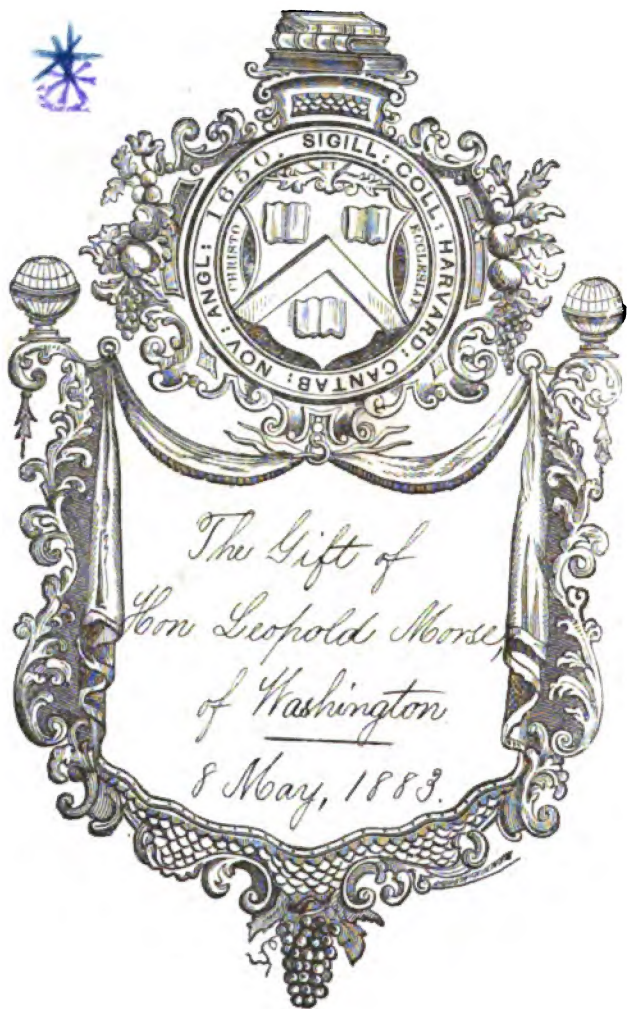 SIGILL: COLL: HARVARD: CANTAB: NOV: ANGL: 1650.
ET
CHRISTO
ECCLESIAE
The Gift of
Hon Leopold Morse,
of Washington
8 May, 1883.